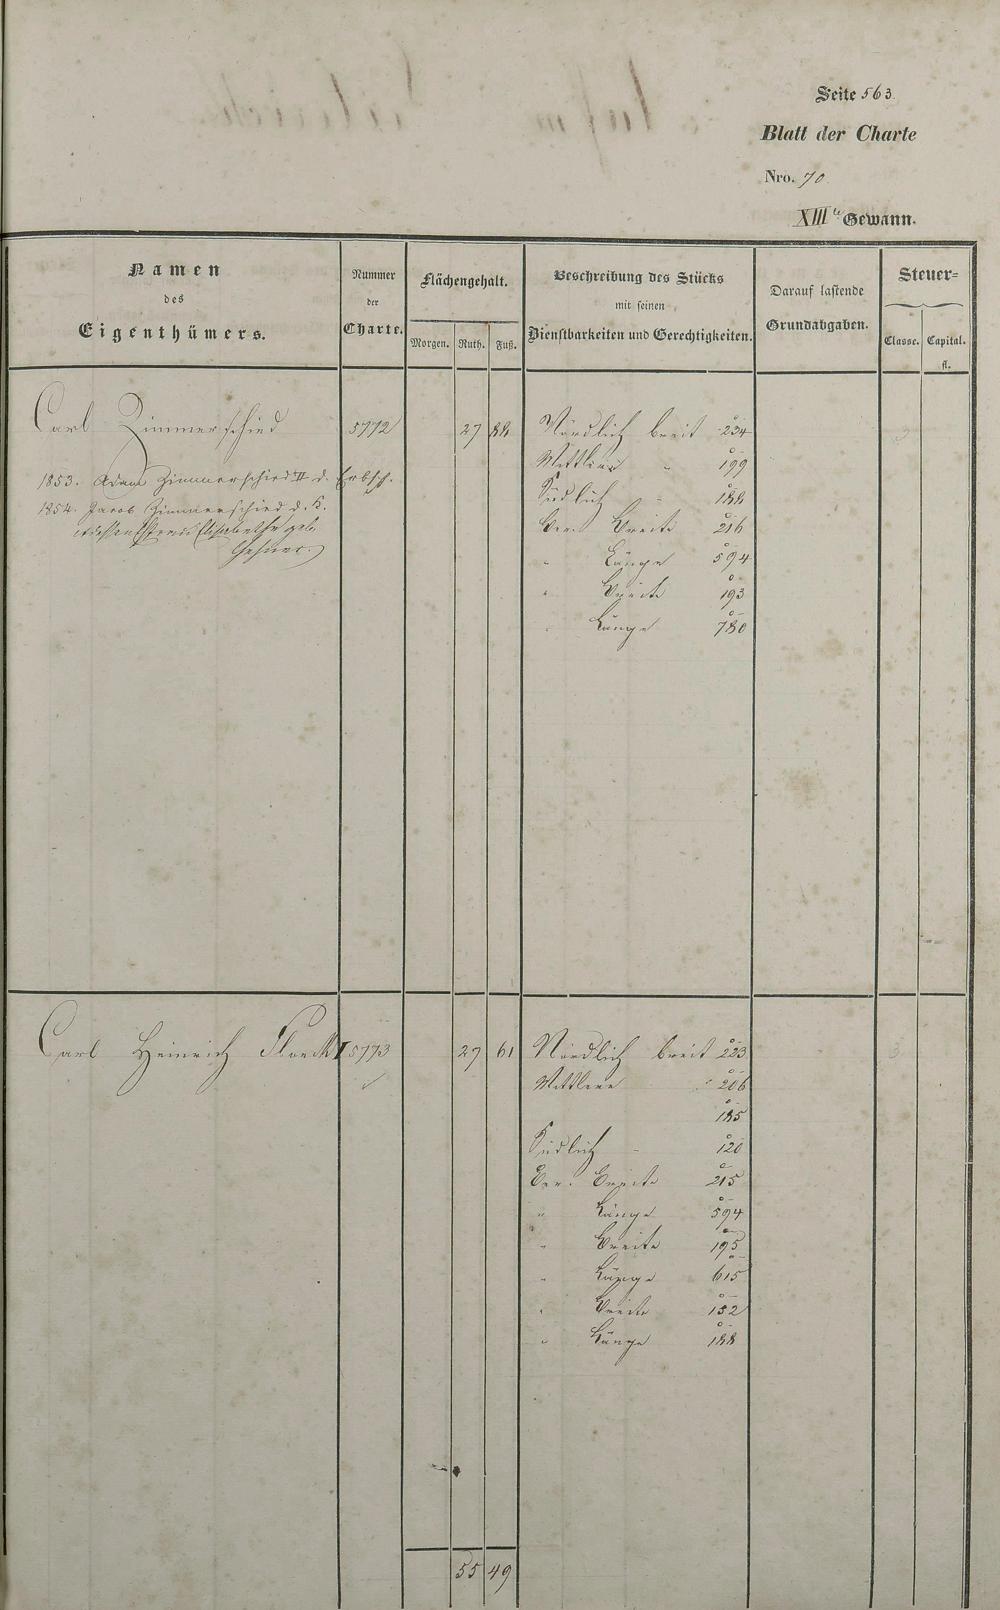 Seite 563
Blatt der Charte
Nro. 70
XIIIte Gewann.
Namen
des
Eigenthümers.
Nummer
der
Charte.
Flächengehalt.
Morgen. Ruth. Fuß.
Beschreibung des Stücks
mit seinen
Dienstbarkeiten und Gerechtigkeiten.
Darauf lastende
Grundabgaben.
Steuer=
Classe. Capital.
fl.
Carl Zimmerschied 5772 27 88 Nördlich breit 234
Mittlere " 199
Südlich " 188
Ver. Breite 216
" Länge 594
" Breite 193
" Länge 780
1853. Adam Zimmerschied II d. Erbsch.
1854. Jacob Zimmerschied d. K.
u dessen Ehefrau Elisabethe geb.
Carl Heinrich Floeck I 5773 27 61 Nördlich breit 223
Mittlere " 206
185
Südlich " 120
Ver. Breite 215
" Länge 594
" Breite 195
" Länge 615
" Breite 152
" Länge 188
55 49